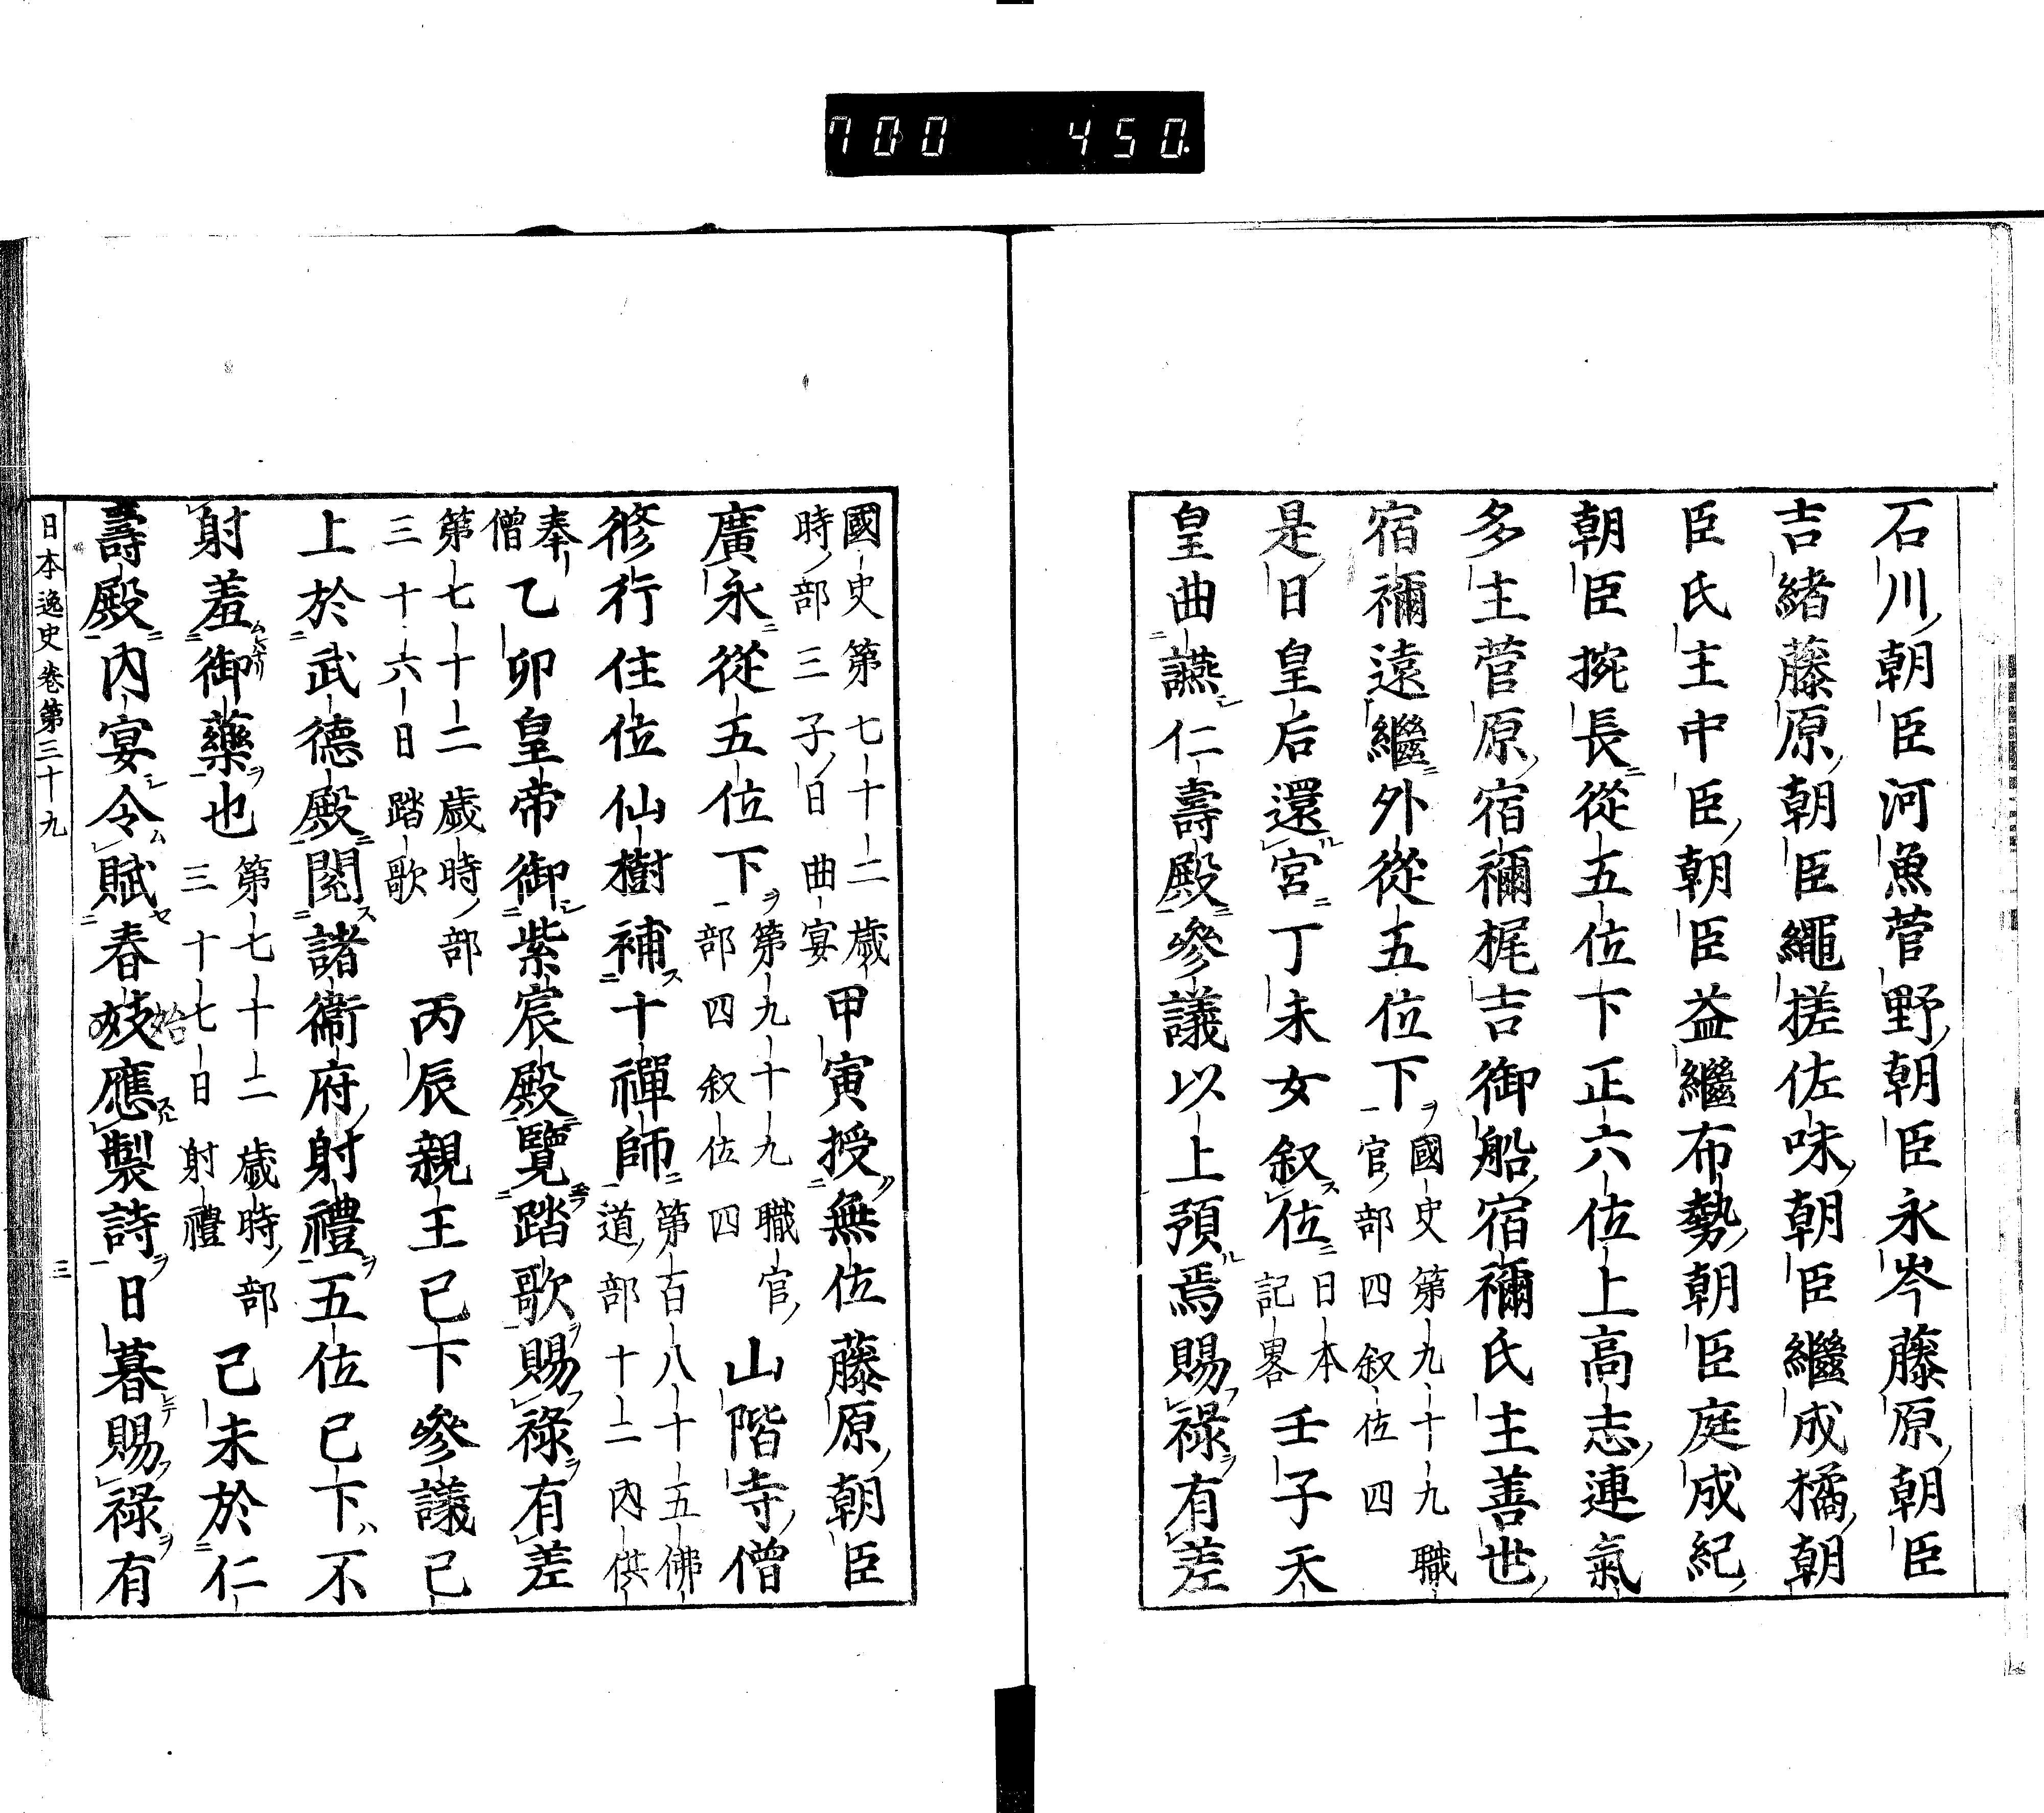 700 450
石川朝臣河魚菅野朝臣永岑藤原朝臣
吉緒藤原朝臣繩搓佐味朝臣繼成橘朝
臣氏主中臣朝臣益繼布勢朝臣庭成紀
朝臣捥長從五位下正六位上高志連氣
多主菅原宿禰梶吉御船宿禰氏主善世
宿禰遠繼外從五位下ヲ國史第九十九職
官部四叙位四
是日皇后還ル宮ニ丁未女叙ス位ニ日本
記畧壬子天
皇曲讌シ仁壽殿ニ參議以上預ル焉賜フ祿ヲ有差
國史第七十二歲
時部三子日曲宴甲寅授無位藤原朝臣
廣永從五位下ヲ第九十九職官
部四叙位四山階寺僧
修行住位仙樹補ス十禪師ニ第百八十五佛
道部十二內供
奉
僧乙卯皇帝御シ紫宸殿ニ覽踏歌ヲ賜フ祿ヲ有差
第七十二歲時部
三十六日踏歌丙辰親王已下參議已
上於武德殿ニ閱ス諸衞府射禮ヲ五位已下ハ不
射羞御藥ヲ也第七十二歲時部
三十七日射禮己未於仁
壽殿ニ內宴シ令ム賦セ春妓始應スル製詩ヲ日暮レテ賜フ祿ヲ有
日本逸史卷第三十九 三